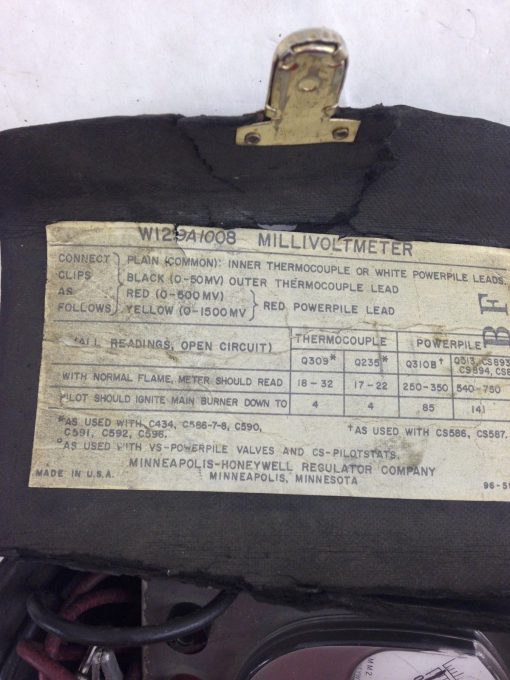 W129A1008 MILLIVOLTMETER
CONNECT PLAIN (COMMON): INNER THERMOCOUPLE OR WHITE POWERPILE LEADS,
CLIPS BLACK (0-50MV) OUTER THERMOCOUPLE LEAD
AS RED (0-500MV)
FOLLOWS YELLOW (0-1500MV) RED POWERPILE LEAD
BF
(ALL READINGS, OPEN CIRCUIT) THERMOCOUPLE POWERPILE
Q309* Q235* Q310B† Q313, CS893
CS894,
WITH NORMAL FLAME, METER SHOULD READ 18-32 17-22 250-350 540-750
PILOT SHOULD IGNITE MAIN BURNER DOWN TO 4 4 85 141
*AS USED WITH, C434, C586-7-8, C590,
C591, C592, C596.
†AS USED WITH CS586, CS587,
°AS USED WITH VS-POWERPILE VALVES AND CS-PILOTSTATS.
MINNEAPOLIS-HONEYWELL REGULATOR COMPANY
MADE IN U.S.A. MINNEAPOLIS, MINNESOTA